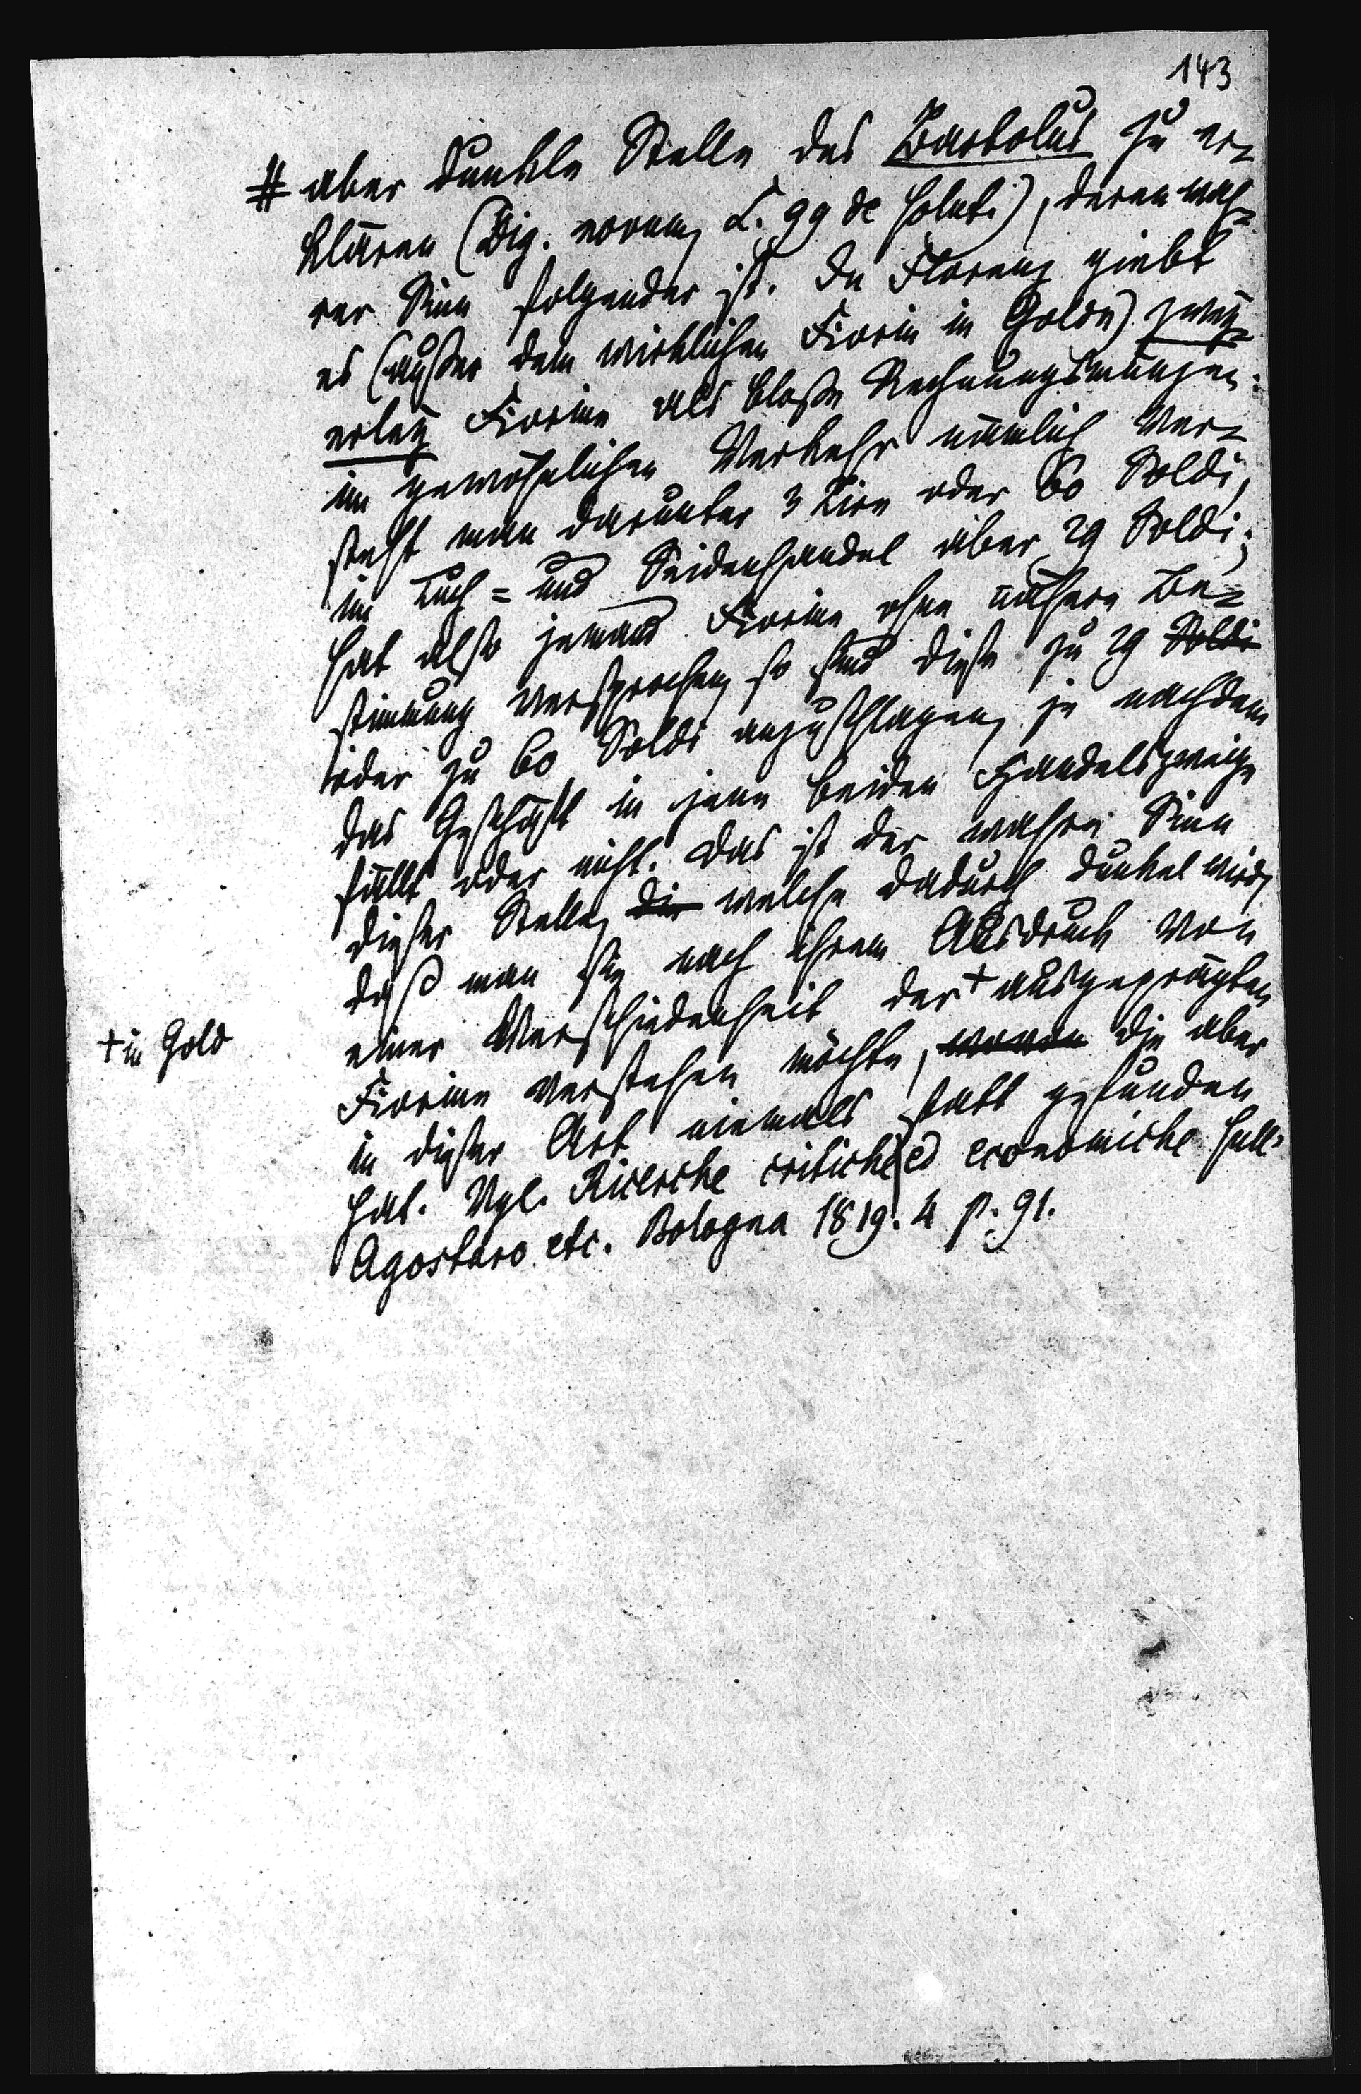 143
# aber dunkle Stelle des Bartolus zu er-
klären (Dig. novum, L. 99 de solut.), deren wah-
rer Sinn folgender ist. In Florenz giebt
es (außer dem wirklichen Fiorin in Golde) zwey-
erley Fiorine als bloße Rechnungsmünzen:
im gewöhnlichen Verkehr nämlich ver-
steht man darunter 3 Lire oder 60 Soldi,
im Tuch= und Seidenhandel aber 29 Soldi;
hat also jemand Fiorine ohne nähere Be-
stimmung versprochen, so sind diese zu 29 Soldi
oder zu 60 Soldi anzuschlagen, je nachdem
das Geschäft in jene beiden Handelszweige
fällt oder nicht. Das ist der wahre Sinn
dieser Stelle, die welche dadurch dunkel wird,
daß man sie nach ihrem Ausdruck von
einer Verschiedenheit der + ausgeprägten
+ in Gold
Fiorine verstehen möchte, wovon die aber
in dieser Art niemals statt gefunden
hat. Vgl. Ricerche critiche ed economiche sull'
Agostaro etc. Bologna 1819. 4 p. 91.